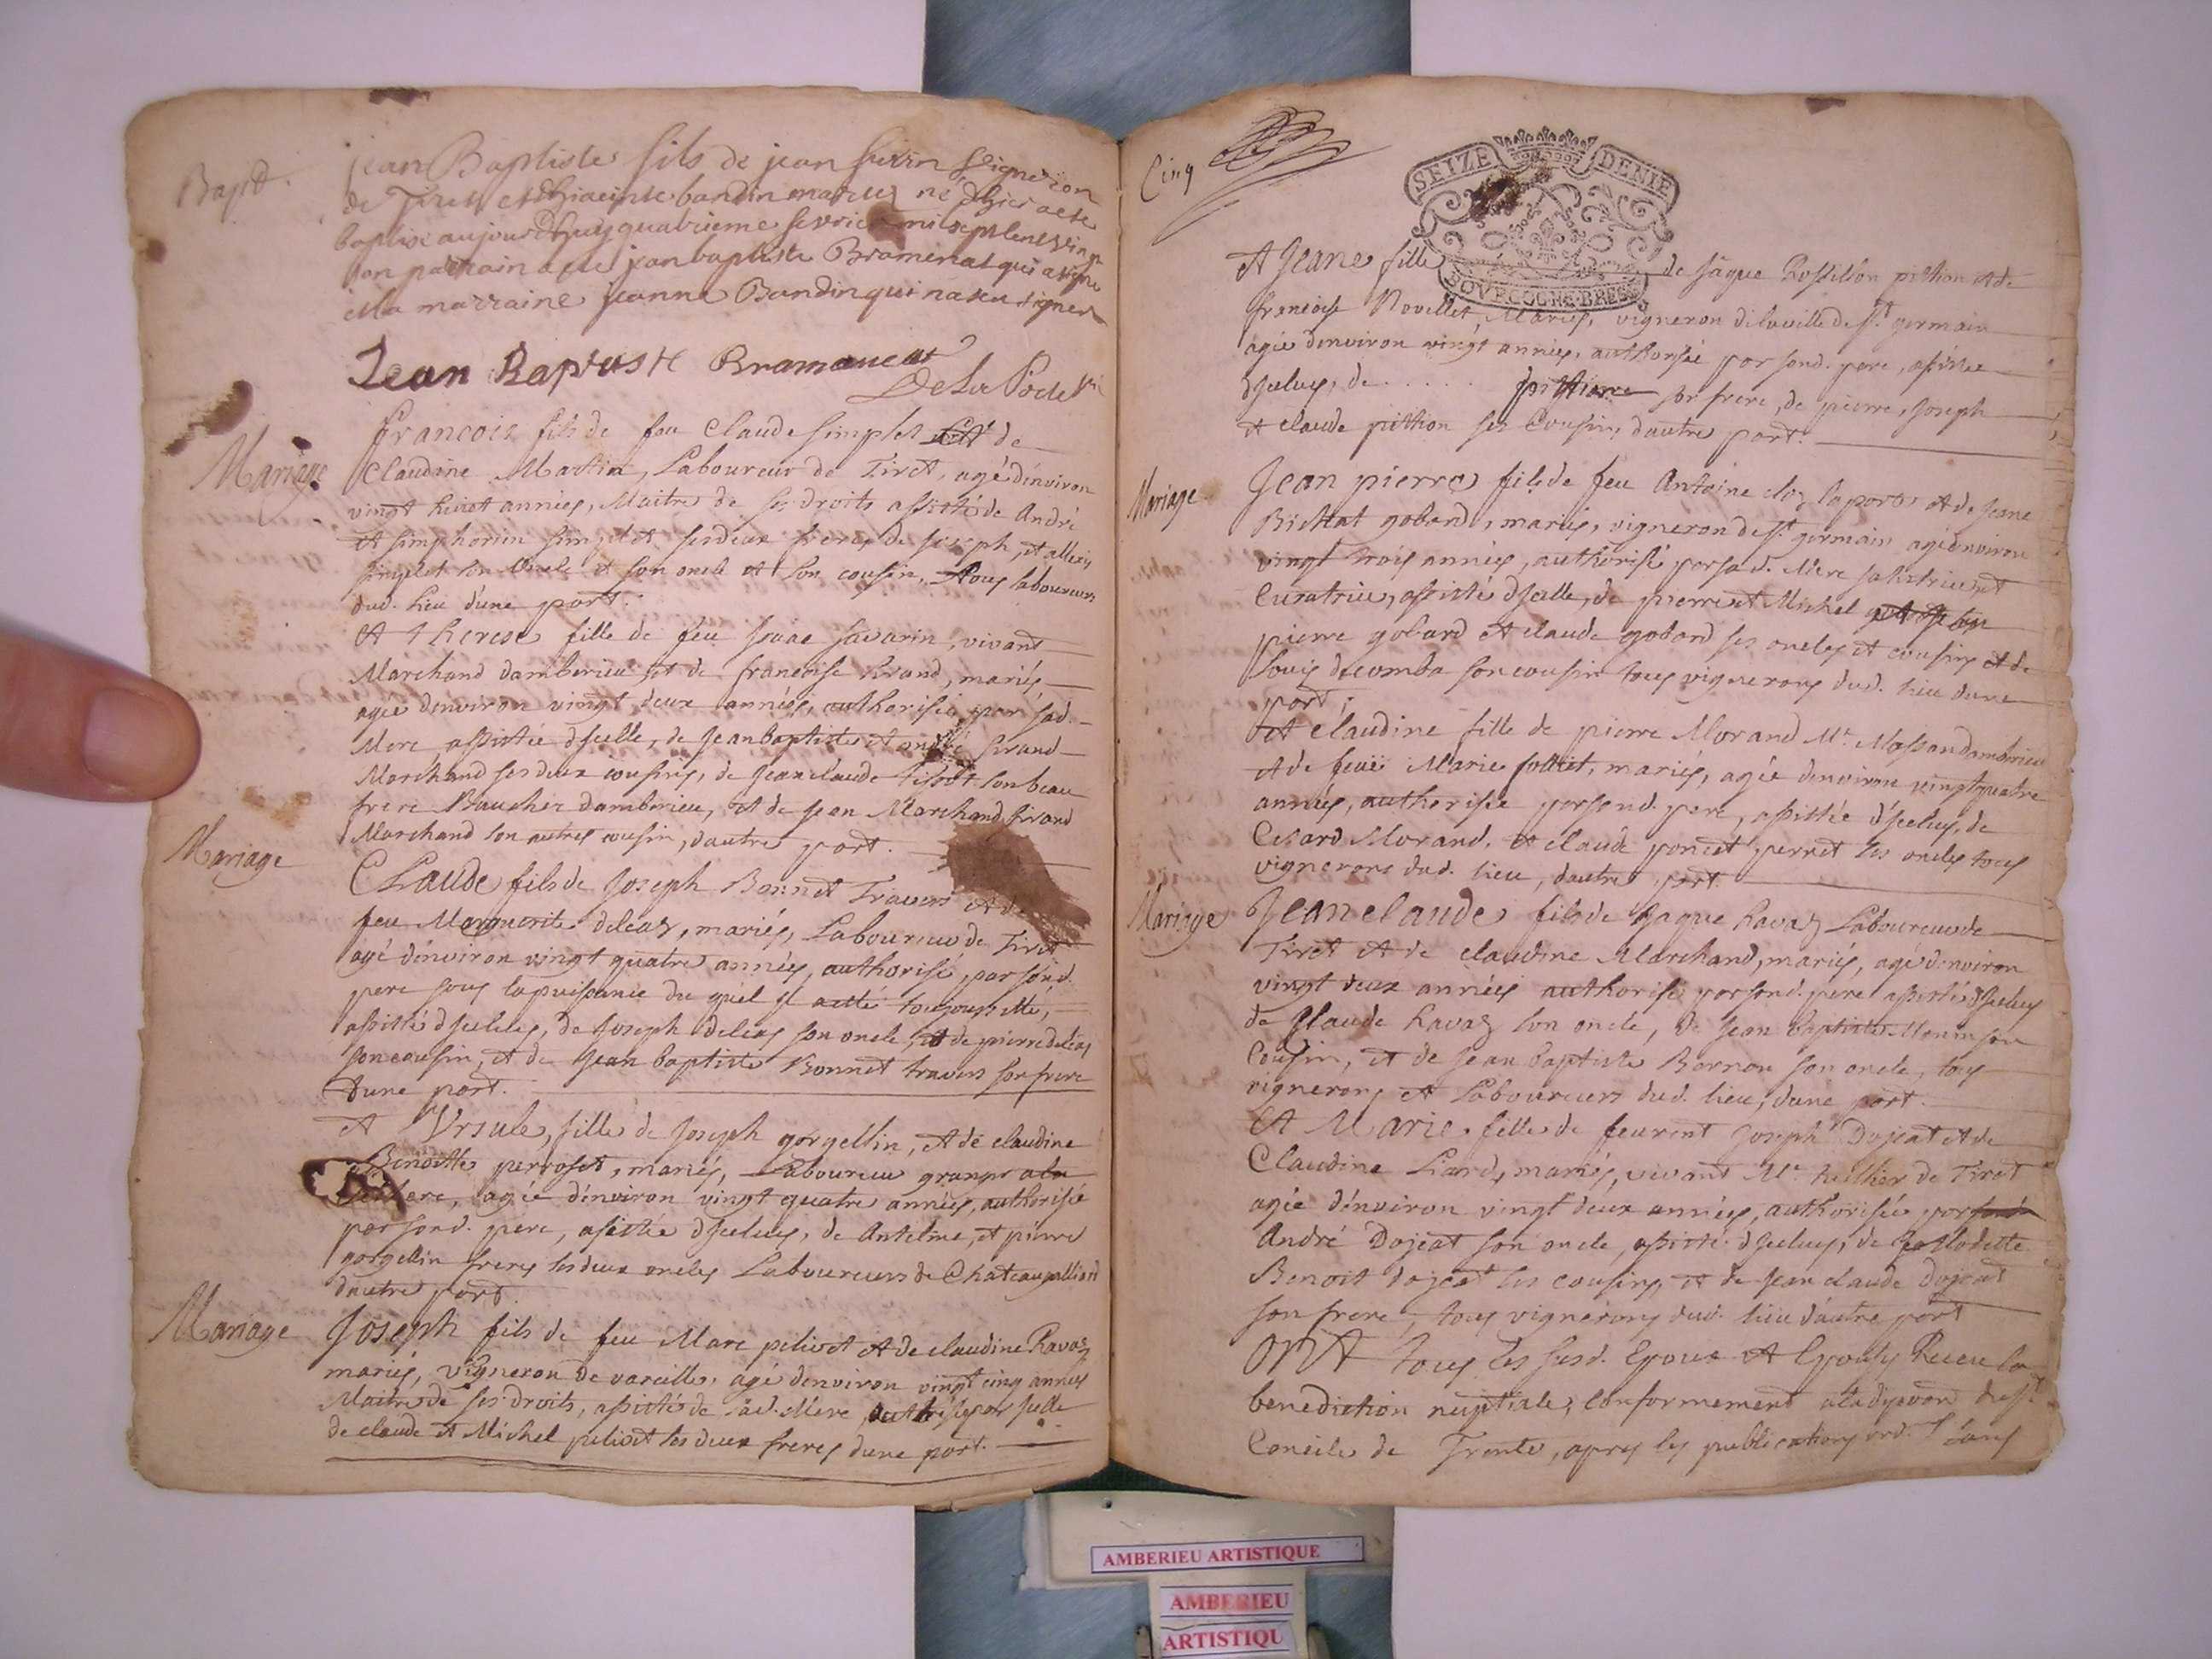 Bapt.
jean Baptiste fils de jean
de Tiret et
baptisé aujourdhuy quatrieme mil sept cent vingt
son parrain a esté jean baptiste Bramenat qui a signé
et la marraine jeanne Bandin qui na sceu signer
Jean Baptiste Bramancat
De La Porte
Mariage
francois fils de feu Claude simplet et de
Claudine Martin, Laboureur de Tiret, agé d'environ
vingt huict années, Maitre de ses droits assisté de André
et simphorien simplet ses deux freres de joseph, et
simplet son oncle et son cousin, tous laboureurs
dud. lieu d'une part.
et therese fille de feu savarin, vivant
Marchand damberieu et de francoise mariés
agée denviron vingt deux années, authorisée par sad.
Mere assistée d'jcelle, de jean baptiste et andré
Marchand ses deux cousins, de jean claude tissot son beau
frere Boucher damberieu, et de jean Marchand
Marchand son autre cousin, dautre part.
Mariage
CLaude fils de joseph Bonnet Travers et de
feu Marguerite deleaz, mariés, Laboureur de Tiret
agé d'environ vingt quatre années, authorisé par sond.
pere sous la puissance du quel jl a esté toujours
assisté d'jceluy, de joseph deleaz son oncle, et de pierre deleaz
son cousin, et de jean baptiste Bonnet travers son frere
d'une part.
et Ursule, fille de joseph gorgellin, et de claudine
Benoitte perroset, mariés, Laboureur granger a la
agée d'environ vingt quatre années, authorisée
par sond. pere, assistée d'jceluy, de Antelme, et pierre
gorgellin freres ses deux oncles Laboureurs de Chateaugalliard
dautre part.
Mariage
Joseph fils de feu Marc pelivet et de claudine Ravaz
mariés, vigneron de vareille, agé denviron vingt cinq années
Maitre de ses droits, assisté de sad. Mere, authorisé par jcelle
de claude et Michel pelivet ses deux freres dune part.
Cinq
SEIZE DENIE
BOVRGOGNE·BRES
et jeane fille de jaque Rossillon pithon et de
francoise Novellet, Mariés, vigneron de la ville de St germain
agée denviron vingt années, authorisée par sond. pere, assistée
d'jceluy, de . . . . . pithion son frere, de pierre, joseph
et claude pithion ses cousins, dautre part.
Mariage
Jean pierre fils de feu Antoine et de jeane
Bichat gobard, mariés, vigneron de St germain agé denviron
vingt trois années, authorisé par sad. Mere sa tutrice, et
curatrice, assisté d'jcelle, de pierre et Michel
pierre gobard et claude gobard ses oncles et cousins et de
Louis decomba son cousin tous vignerons dud. lieu dune
part;
et claudine fille de pierre Morand Mt. Masson damberieu
et de feüe Marie follet, mariés, agée denviron vingt quatre
années, authorisée par sond. pere, assistée d'jceluy, de
Cesard Morand, et claude poncet perret ses oncles tous
vignerons dud. lieu, dautre part.
Mariage
Jean claude fils de jaque Ravaz Laboureur de
Tiret et de claudine Marchand, mariés, agé denviron
vingt deux années authorisé par sond. pere assisté d'jceluy
de Claude Ravaz son oncle, de jean baptiste Monin son
cousin, et de jean baptiste Bornon son oncle, tous
vignerons et Laboureurs dud. lieu, dune part.
et Marie fille de joseph Dojeat et de
Claudine Liard, mariés, vivant Mt. tuillier de Tiret
agée d'environ vingt deux années, authorisée par
André Dojeat son oncle, assistée d'jceluy, de
Benoit dojeat ses cousins, et de jean claude Dojeat
son frere, tous vignerons dud. lieu dautre part
ONT tous les susd. Epoux et Epouses Receu la
benediction nuptiale, conformement a la St
Concile de Trente, apres les publications ord. sans
AMBERIEU ARTISTIQUE
AMBERIEU
ARTISTIQU